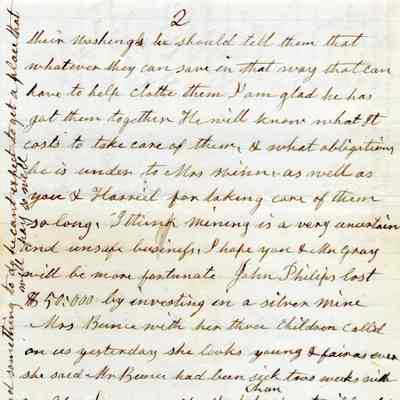 2
their washing & he should tell them that
whatever they can save in that way that can
have to help clothe them I am glad he has
got them together He will know what it
costs to take care of them, & what obligations
he is under to Mrs Minn as well as
you & Harriet for taking care of them
so long, I think mining is a very uncertain
and unsafe business, I hope you & Mr Gray
will be more fortunate John Philips lost
$50:000 by investing in a silver mine
Mrs Bunce with her three children called
on us yesterday she looks young & fair as ever
she said Mr Bunce had been sick two weeks with
something to do he cant expect to get a place that
will pay so well